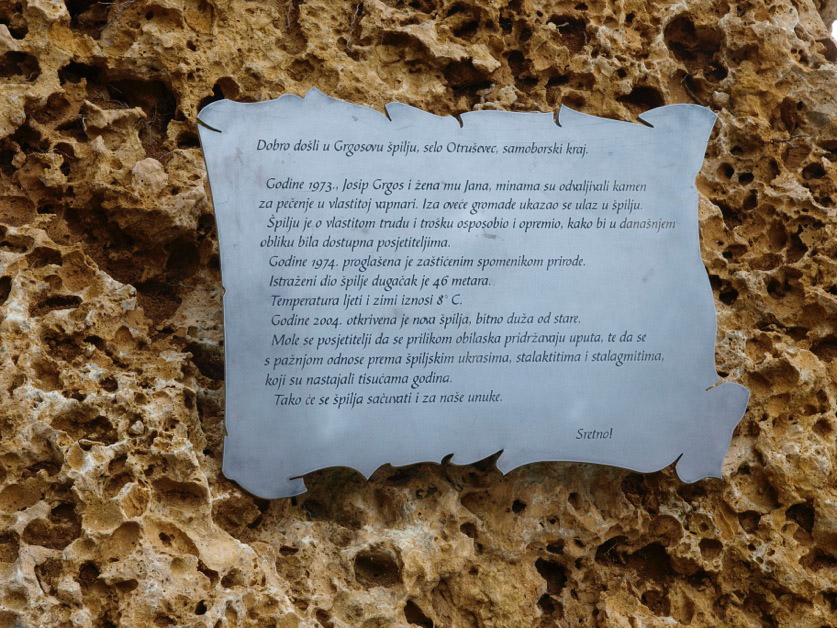 Dobro došli u Grgosovu špilju, selo Otruševec, samoborski kraj.
Godine 1973., Josip Grgos i žena mu Jana, minama su odvaljivali kamen
za pečenje u vlastitoj vapnari. Iza oveće gromade ukazao se ulaz u špilju.
Špilju je o vlastitom trudu i trošku osposobio i opremio, kako bi u današnjem
obliku bila dostupna posjetiteljima.
Godine 1974. proglašena je zaštićenim spomenikom prirode.
Istraženi dio špilje dugačak je 46 metara.
Temperatura ljeti i zimi iznosi 8° C.
Godine 2004. otkrivena je nova špilja, bitno duža od stare.
Mole se posjetitelji da se prilikom obilaska pridržavaju uputa, te da se
s pažnjom odnose prema špiljskim ukrasima, stalaktitima i stalagmitima,
koji su nastajali tisućama godina.
Tako će se špilja sačuvati i za naše unuke.
Sretno!